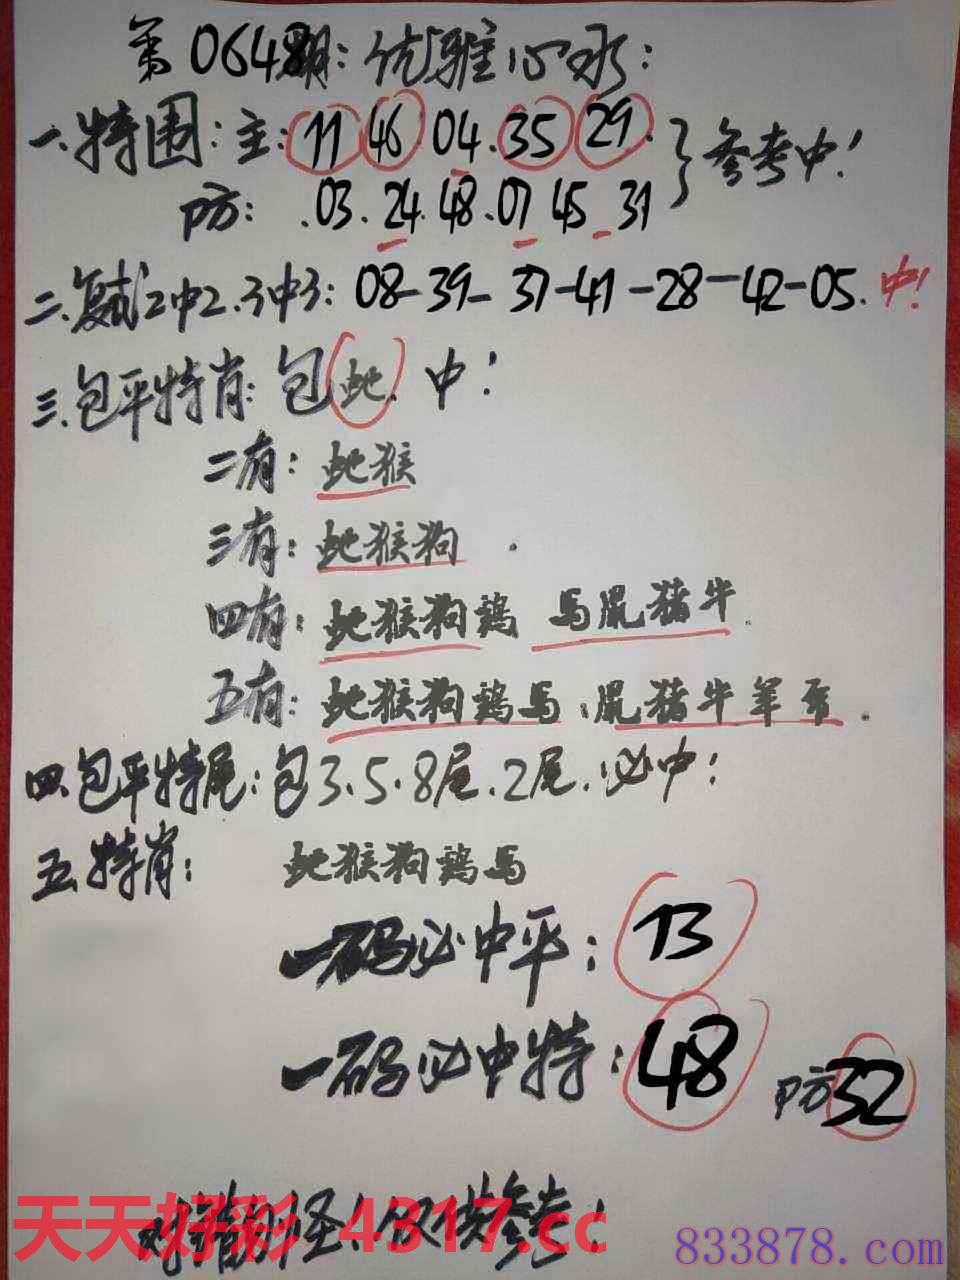 第0648期:优雅心水:
一.特围:主:11 46 04.35 29.}参考中!
防:.03.24.48.07 45 31
二.复试2中2.3中3:08-39-37-41-28-42-05.中!
三.包平特肖:包蛇.中!
二有:蛇猴
三有:蛇猴狗.
四有:蛇猴狗鸡 马鼠猪牛.
五有:蛇猴狗鸡马:鼠猪牛羊
四.包平特尾:包3.5.8尾.2尾.必中!
五.特肖:蛇猴狗鸡马
一码必中平:13
一码必中特:48 防32
对错勿怪!仅供参考!
天天好彩 4317.cc
833878.com